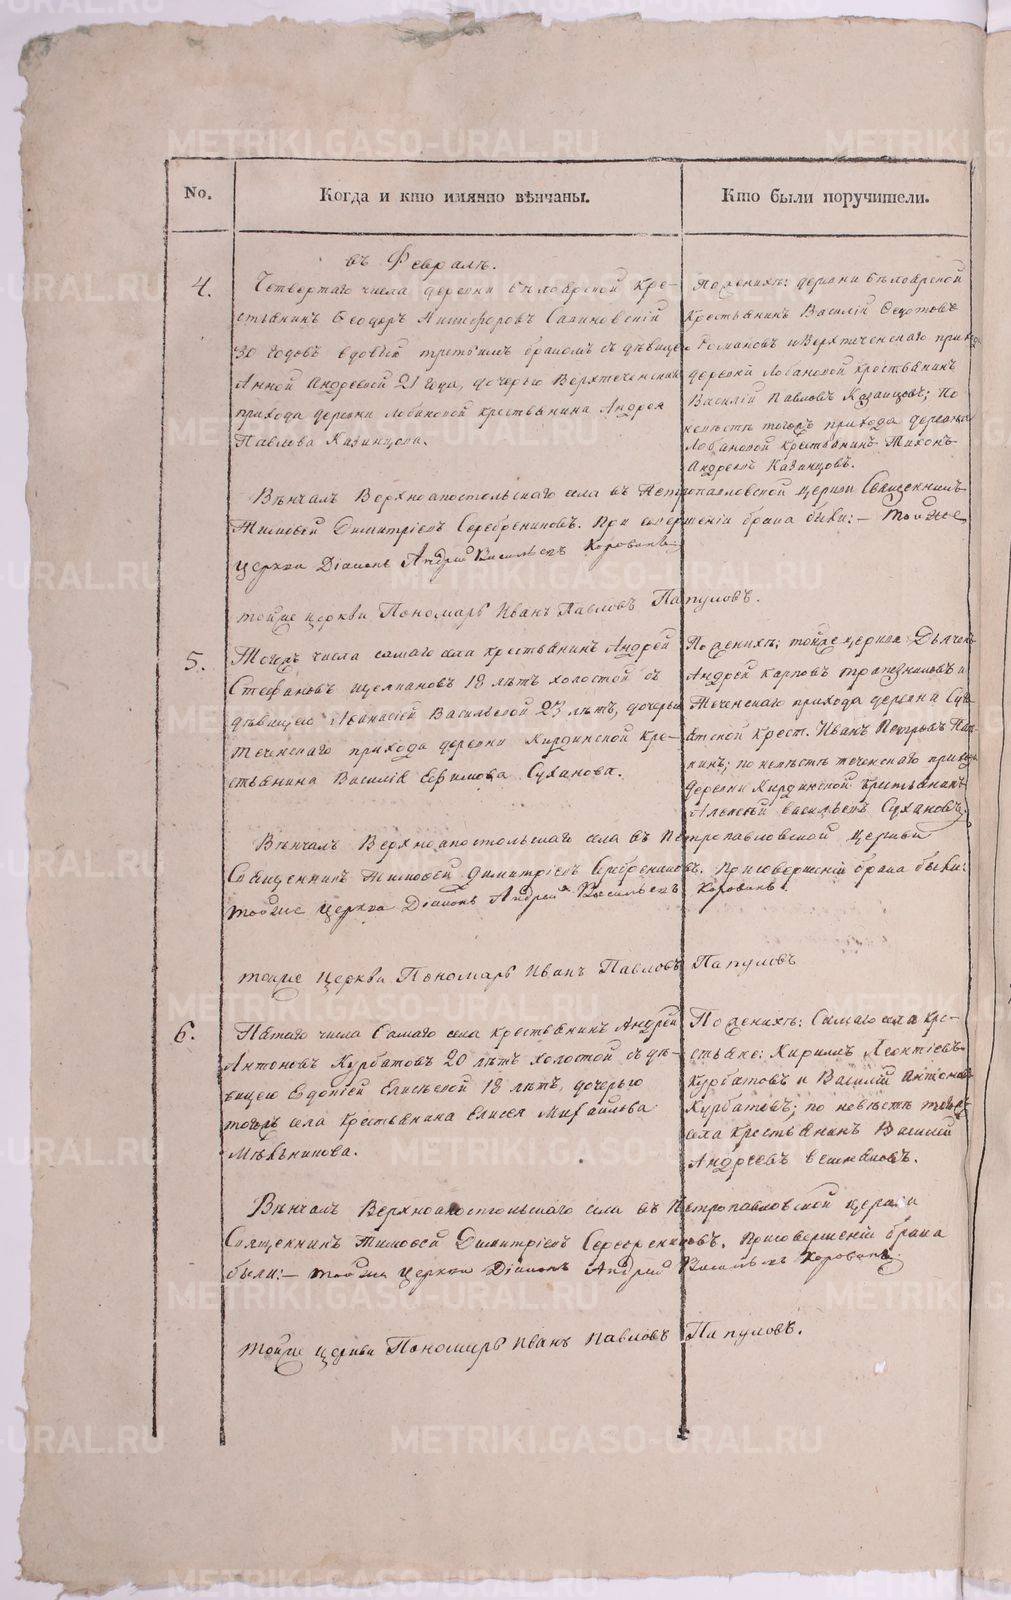 No.
Когда и кто имянно вѣнчаны.
Кто были поручители.
въ Февралѣ.
4.
Четвертаго числа деревни Бѣлоярской кре-
стьянинъ Ѳеодоръ Никифоровъ
30 годовъ вдовый третьимъ бракомъ съ дѣвицею
Анной Андреевой 21 года, дочерью Верхтеченскаго
прихода деревни Лобановой крестьянина Андрея
Павлова Казанцова.
По женихѣ: деревни Бѣлоярской
Крестьянинъ Василій Ѳедотовъ
Романовъ и Верхтеченскаго прихода
деревни Лобановой крестьянинъ
Василій Павловъ Казанцовъ; По
невѣстѣ тогожъ прихода деревни
Лобановой крестьянинъ Тихонъ
Андреевъ Казанцовъ.
Вѣнчалъ Верхноапостольскаго села въ Петропавловской церкви Священникъ
Тимоѳей Димитріевъ Серебрениковъ. При совершеніи брака были: – тойже
церкви Діаконъ Андрей Васильевъ Коровинъ
тойже церкви Пономарь Иванъ Павловъ Папуловъ.
5.
Тогожъ числа самаго села крестьянинъ Андрей
Стефановъ Щелкановъ 18 лѣтъ холостой съ
дѣвицею Аѳанасіей Васильевой 23 лѣтъ, дочерью
Теченскаго прихода деревни Кирдинской кре-
стьянина Василія Ефимова Суханова.
По женихѣ: тойже церкви Дьячекъ
Андрей Карповъ Трапезниковъ и
Теченскаго прихода деревни
крест. Иванъ Петровъ
по невѣстѣ теченскаго прихода
деревни Кирдинской крестьянинъ
Алексѣй Васильевъ Сухановъ.
Вѣнчалъ Верхноапостольскаго села въ Петропавловской церкви
Священникъ Тимоѳей Димитріевъ Серебрениковъ. При совершеніи брака были:
тойже церкви Діаконъ Андрей Васильевъ Коровинъ.
тойже церкви Пономарь Иванъ Павловъ Папуловъ
6.
Пятаго числа Самаго села крестьянинъ Андрей
Антоновъ Курбатовъ 20 лѣтъ холостой съ дѣ-
вицею Евдокіей Елисѣевой 18 лѣтъ, дочерью
тогожъ села Крестьянина Елисея Михайлова
Мѣльникова.
По женихѣ: Самаго села Кре-
стьяне: Кирилъ Леонтіевъ
Курбатовъ и Василій Антоновъ
Курбатовъ; по невѣстѣ тогожъ
села крестьянинъ Василій
Андреевъ
Вѣнчалъ Верхноапостольскаго села въ Петропавловской церкви
Священникъ Тимоѳей Димитріевъ Серебрениковъ. При совершеніи брака
были: – тойже церкви Діаконъ Андрей Васильевъ Коровинъ.
тойже церкви Пономарь Иванъ Павловъ Папуловъ.
METRIKI.GASO-URAL.RU